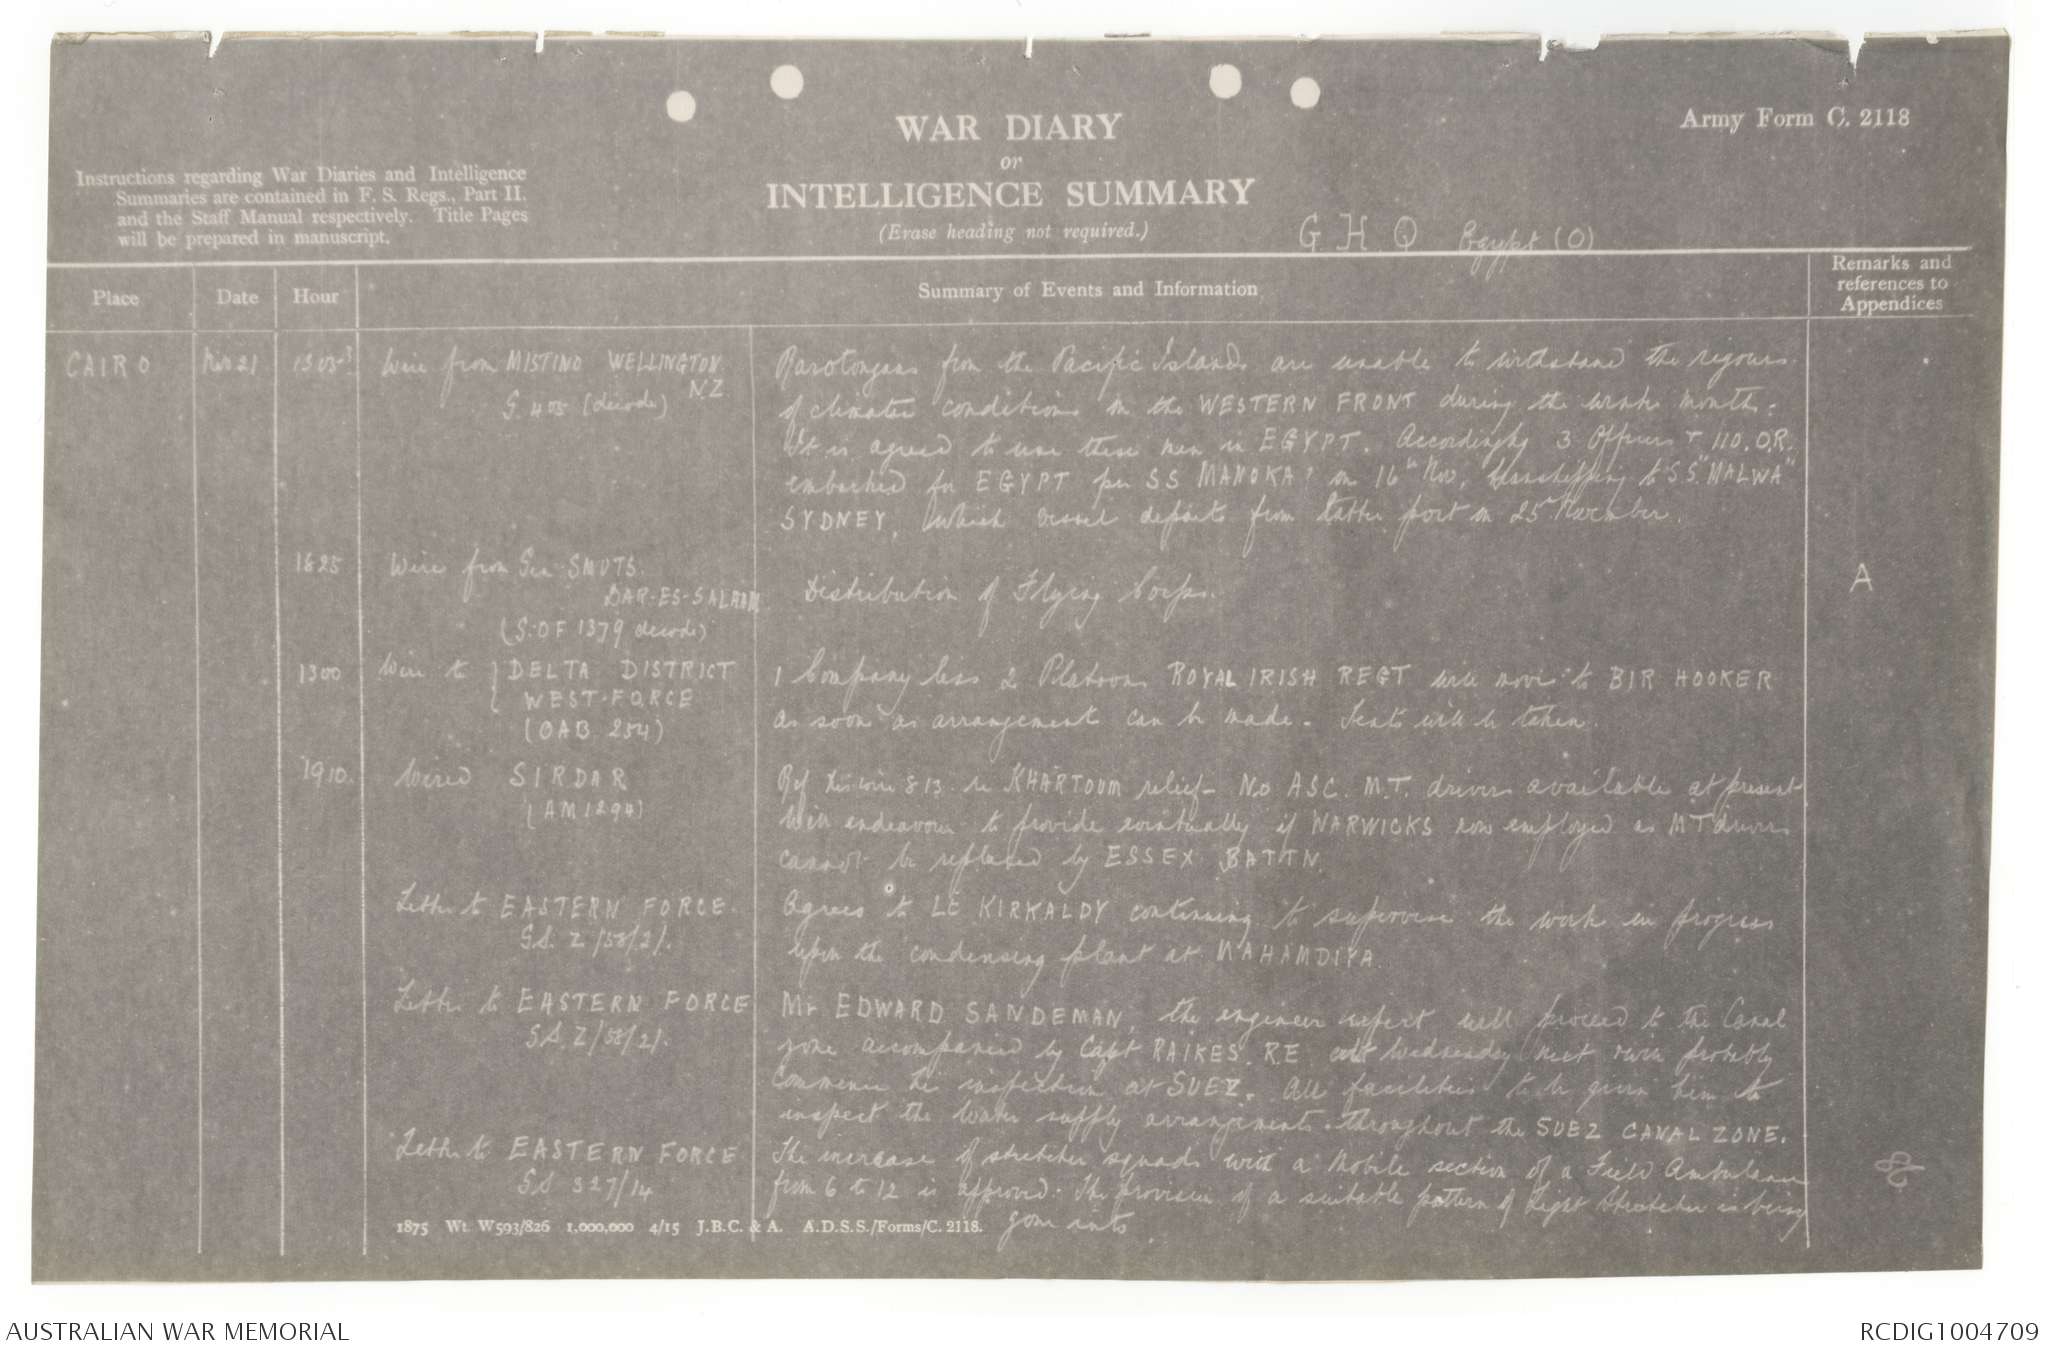 Army Form C. 2118
WAR DIARY
or
INTELLIGENCE SUMMARY
(Erase heading not required.)
Instructions regarding War Diaries and Intelligence
Summaries are contained in F. S. Regs., Part II.
and the Staff Manual respectively. Title Pages
will be prepared in manuscript.
G H Q Egypt (O)
Place
Date
Hour
Summary of Events and Information
Remarks and
references to
Appendices
CAIRO
Nov 21
Wire from MISTINO WELLINGTON
N.Z
(decode)
Rarotongans from the Pacific Islands are unable to withstand the rigours
of climatic conditions on the WESTERN FRONT during the months.
It is agreed to use these men in EGYPT. Accordingly 3 Officers + 110. O.R.
embarked for EGYPT per SS MANUKA? on 16th Nov, transhipping to S.S. "MALWA"
SYDNEY, which vessel departs from latter port on 25 November.
1825
Wire from Gen SMUTS.
DAR-ES-SALAAM
(S.OF 1379 decode)
Distribution of Flying Corps.
A
1300
Wire to DELTA DISTRICT
WEST-FORCE
(OAB 254)
1 Company less 2 Platoons ROYAL IRISH REGT will move to BIR HOOKER
as soon as arrangement can be made. Tents will be taken.
1910.
Wired SIRDAR
(AM 1294)
Ref his wire 813 re KHARTOUM relief - No ASC. M.T. drivers available at present
Will endeavour to provide eventually if WARWICKS now employed as MT drivers
cannot be replaced by ESSEX BATTN.
Letter to EASTERN FORCE.
G.S. Z/58/21.
Agrees to Lt KIRKALDY continuing to supervise the work in progress
upon the condensing plant at MAHAMDIYA
Letter to EASTERN FORCE
G.S. Z/58/21.
Mr EDWARD SANDEMAN, the engineer expert will proceed to the Canal
zone accompanied by Capt RAIKES. R.E. Wednesday next probably
commence his inspection at SUEZ. All facilities to be given him to
inspect the water supply arrangements throughout the SUEZ CANAL ZONE.
Letter to EASTERN FORCE
GS 327/14
The increase of stretcher squads with a Mobile section of a Field Ambulance
from 6 to 12 is approved. The provision of a suitable pattern of Light Stretcher is being
gone into
1875 Wt. W593/826 1,000,000 4/15 J.B.C. & A. A.D.S.S./Forms/C. 2118.
AUSTRALIAN WAR MEMORIAL
RCDIG1004709